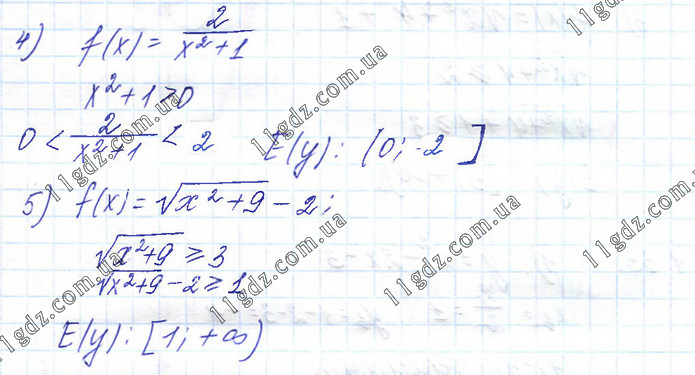 4) f(x) = 2/(x²+1)
x²+1>0
0 < 2/(x²+1) < 2 E(y): (0; 2]
5) f(x) = √(x²+9) - 2;
√(x²+9) ≥ 3
√(x²+9) - 2 ≥ 1
E(y): [1; +∞)
11gdz.com.ua
11gdz.com.ua
11gdz.com.ua
11gdz.com.ua
11gdz.com.ua
11gdz.com.ua